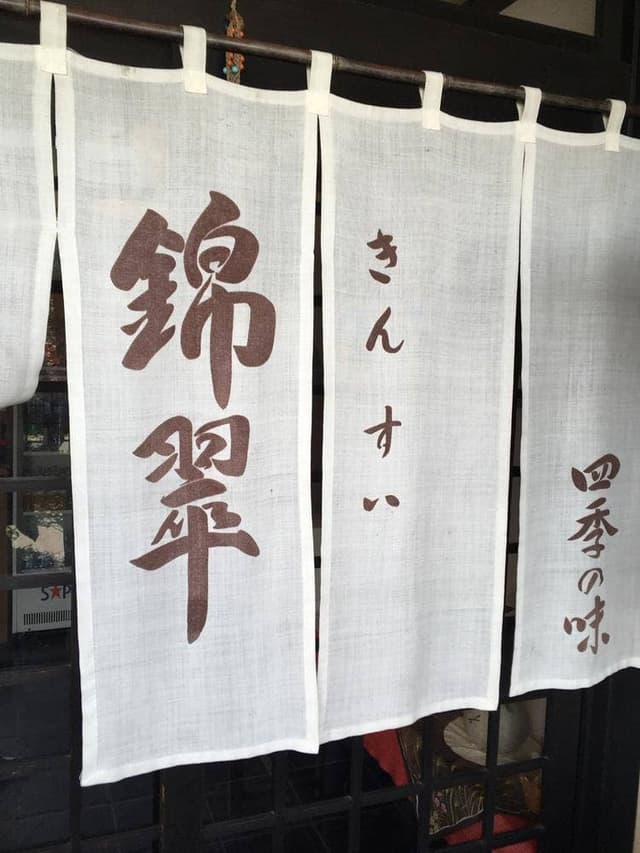 四季の味
きんすい
錦翠
S★P